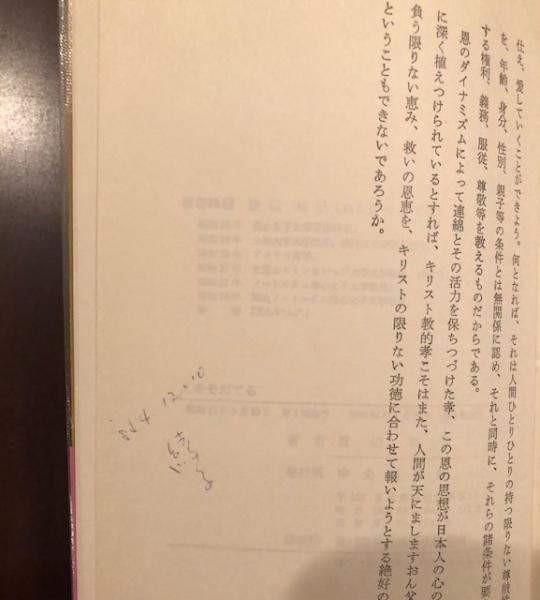 仕え、愛していくことができよう。何となれば、それは人間ひとりひとりの持つ限りない尊厳
を、年齢、身分、性別、親子等の条件とは無関係に認め、それと同時に、それらの諸条件が要
する権利、義務、服従、尊敬等を教えるものだからである。
恩のダイナミズムによって連綿とその活力を保ちつづけた孝、この恩の思想が日本人の心の
に深く植えつけられているとすれば、キリスト教的孝こそはまた、人間が天にましますおん父
負う限りない恵み、救いの恩恵を、キリストの限りない功徳に合わせて報いようとする絶好の
ということもできないであろうか。
'84 12.10